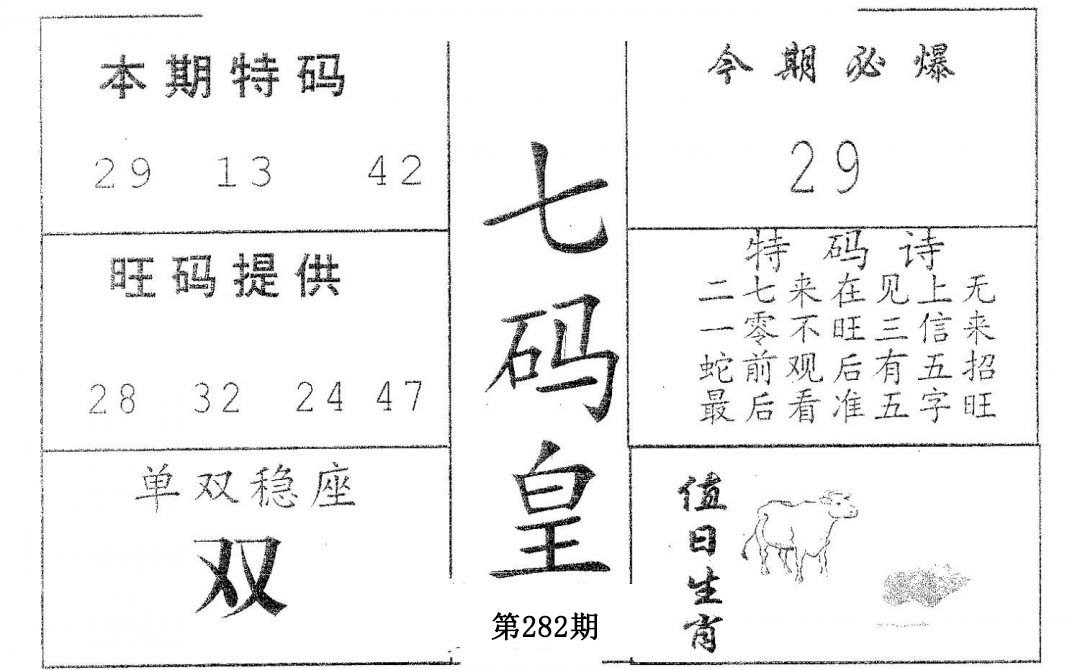 本期特码
29 13 42
旺码提供
28 32 24 47
单双稳座
双
七码皇
第282期
今期必爆
29
特码诗
二七来在见上无
一零不旺三信来
蛇前观后有五招
最后看准五字旺
值日生肖